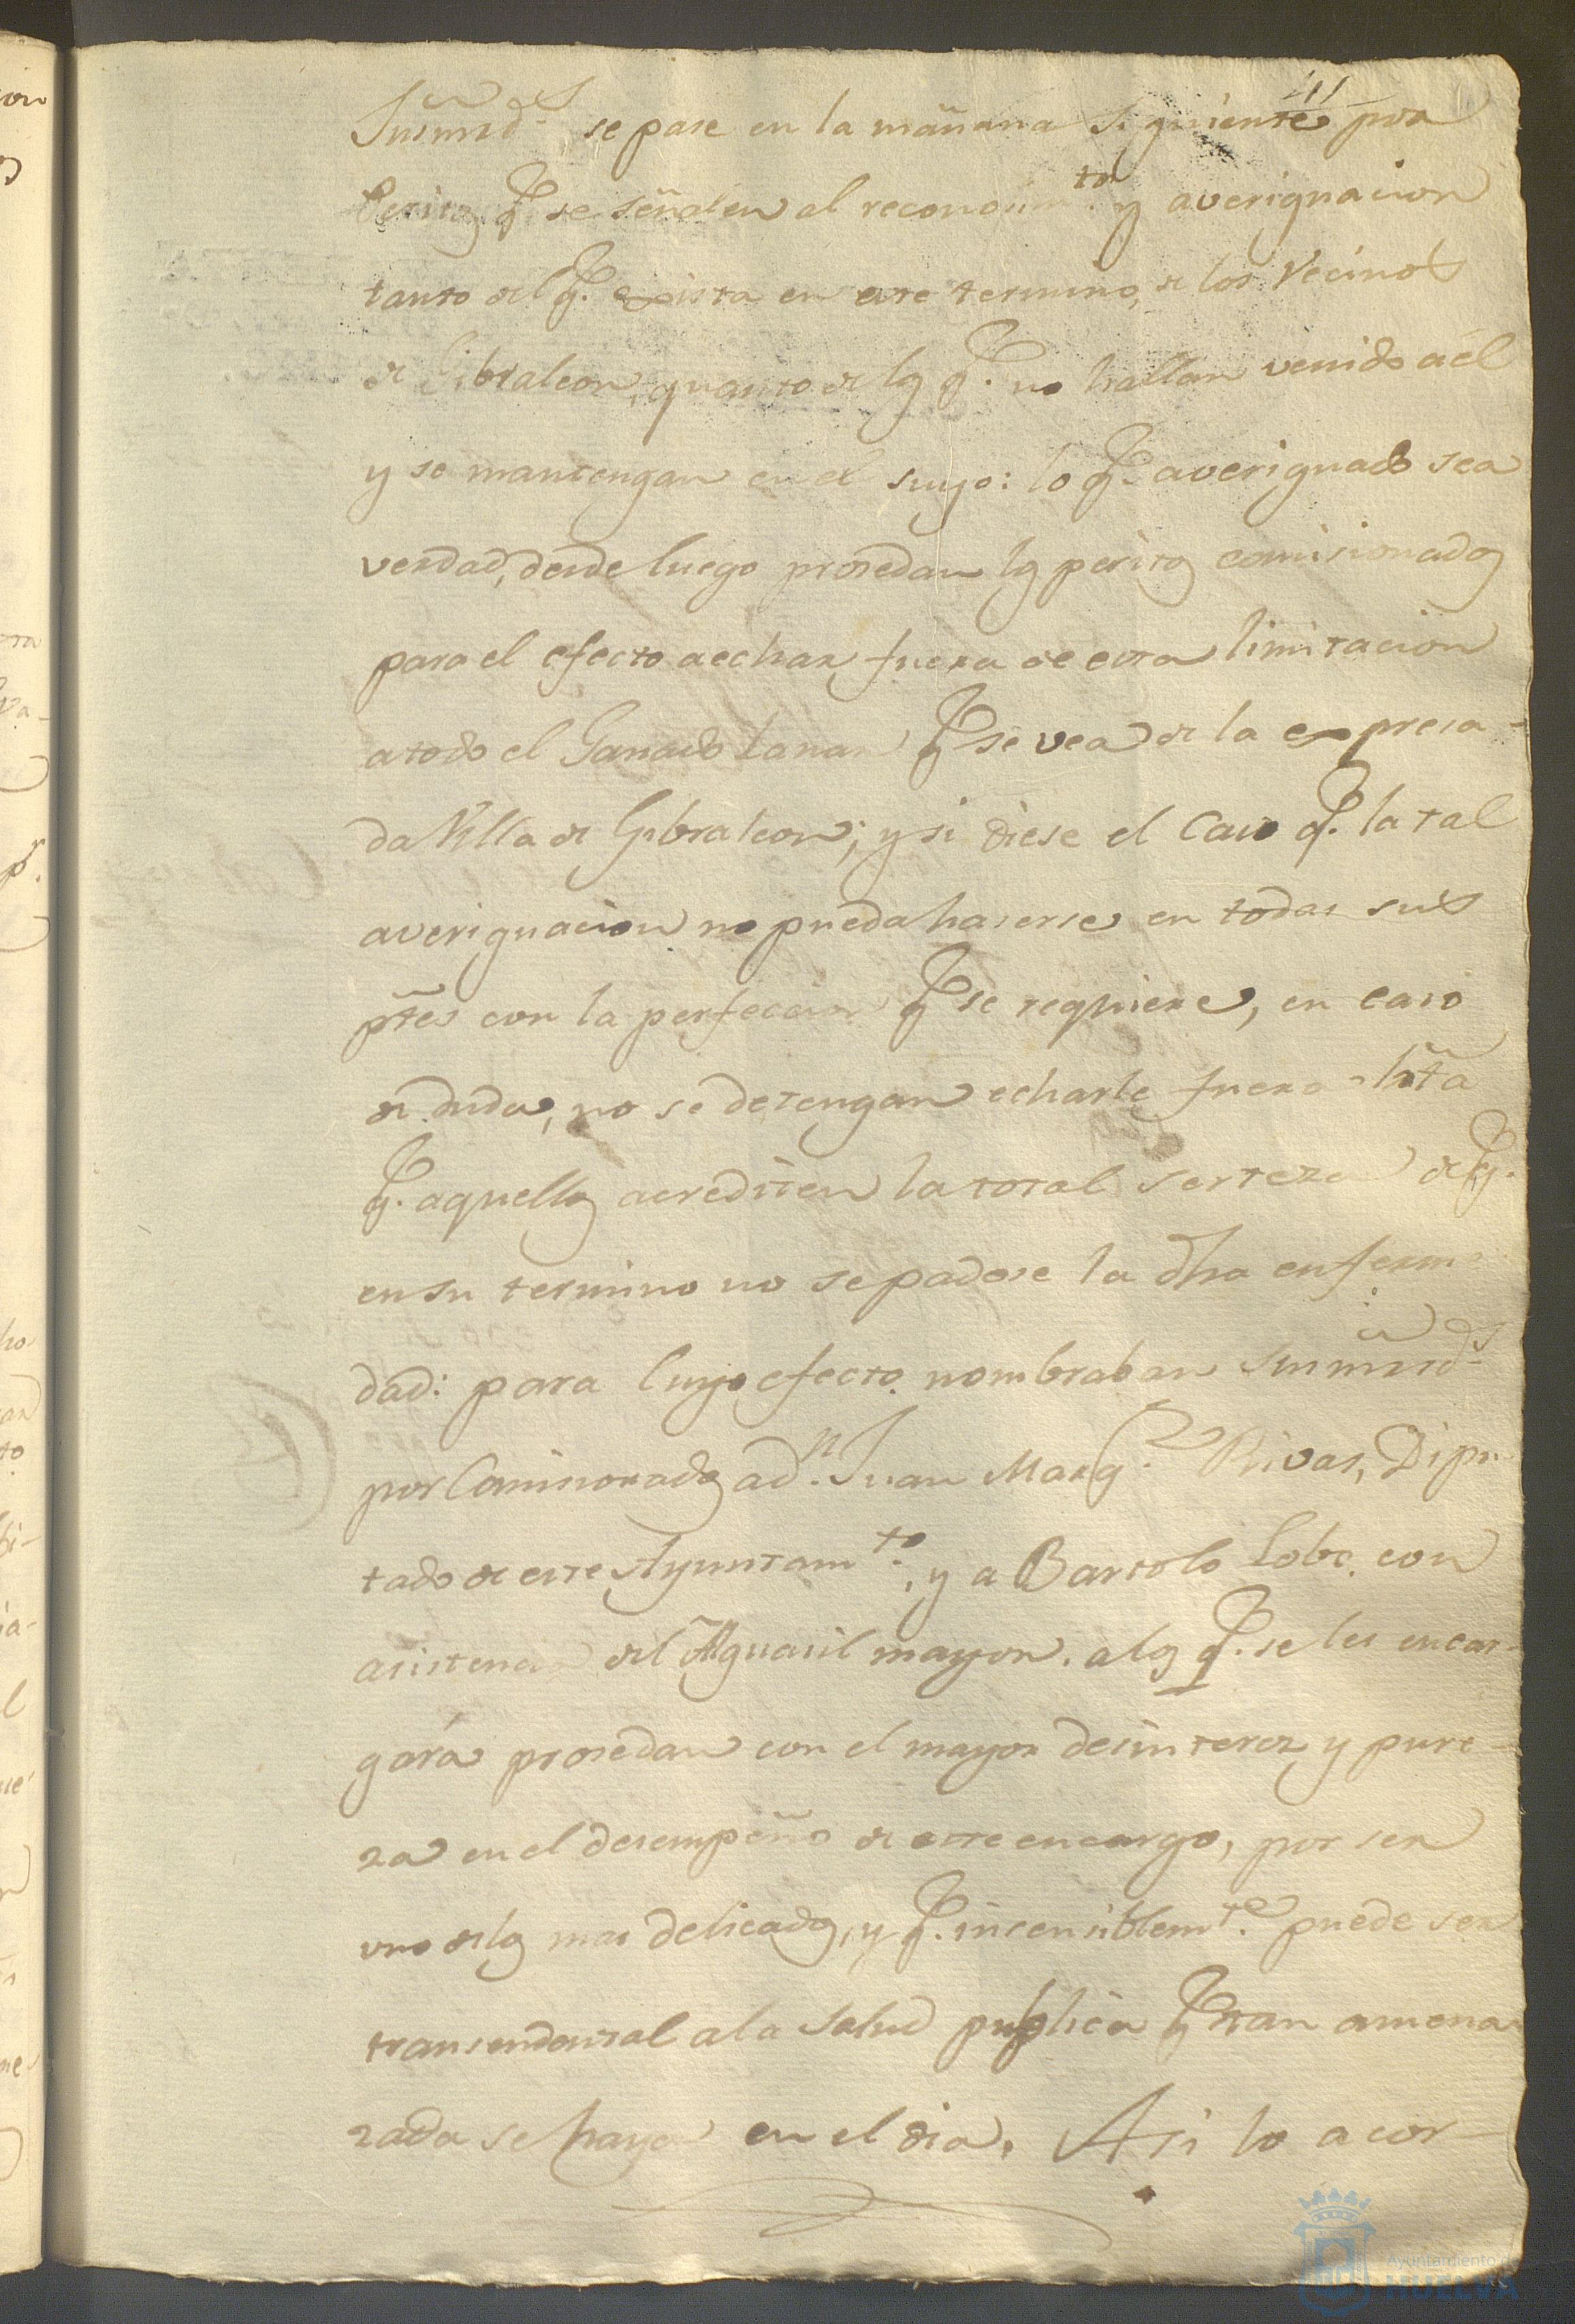 111
Susmrds. se pase en la mañana siguiente por
Peritos q. se señalen al reconosim.to y averiguacion
tanto del q. exista en este termino, de los Vecinos
de Gibraleon, quanto de los q. no hallan venido a él
y se mantengan en el suyo: lo q. averiguado sea
verdad, desde luego prosedan los peritos comisionados
para el efecto a echar fuera de esta limitacion
a todo el Ganado Lanar q. se vea de la expresa-
da Villa de Gibraleon; y si diese el Caso q. la tal
averiguacion no pueda haserse en todas sus
ptes con la perfeccion q. se requiere, en caso
de duda, no se detengan echarle fuera hta
q. aquellos acrediten la total serteza de q.
en su termino no se padese la dha enferme
dad: para Cuyo efecto nombraban Susmrds.
por Comisionados a d.n Juan Marq.z Rivas, Dipu
tado de este Ayuntam.to, y a Bartolo Lobo, con
asistencia del Alguasil mayor. a los q. se les encar-
gará prosedan con el mayor desinterez y pure-
za en el desempeño de este encargo, por ser
uno de los mas delicados, y q. insensiblem.te puede ser
transendental a la salud publica q. tan amena
zada se haya en el dia. Asi lo acor-
Ayuntamiento de
HUELVA